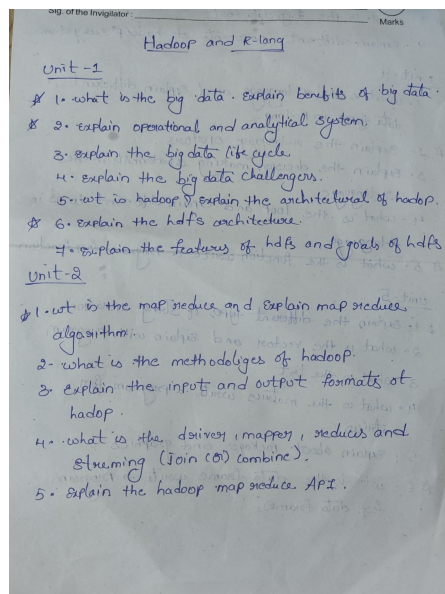 Sig. of the Invigilator :
Marks
Hadoop and R-lang
Unit -1
1. what is the big data. Explain benefits of big data.
2. Explain operational and analytical system.
3. Explain the big data life cycle
4. Explain the big data challengers.
5. wt is hadoop & Explain the architectural of hadop.
6. Explain the hdfs architecture.
7. Explain the features of hdfs and goals of hdfs
Unit-2
1. wt is the map reduce and Explain map reduce
algarithm.
2- what is the methodoliges of hadoop.
3. Explain the input and output formats of
hadop.
4. what is the driver, mapper, reduces and
streming (Join (or) combine).
5. Explain the hadoop map reduce API.